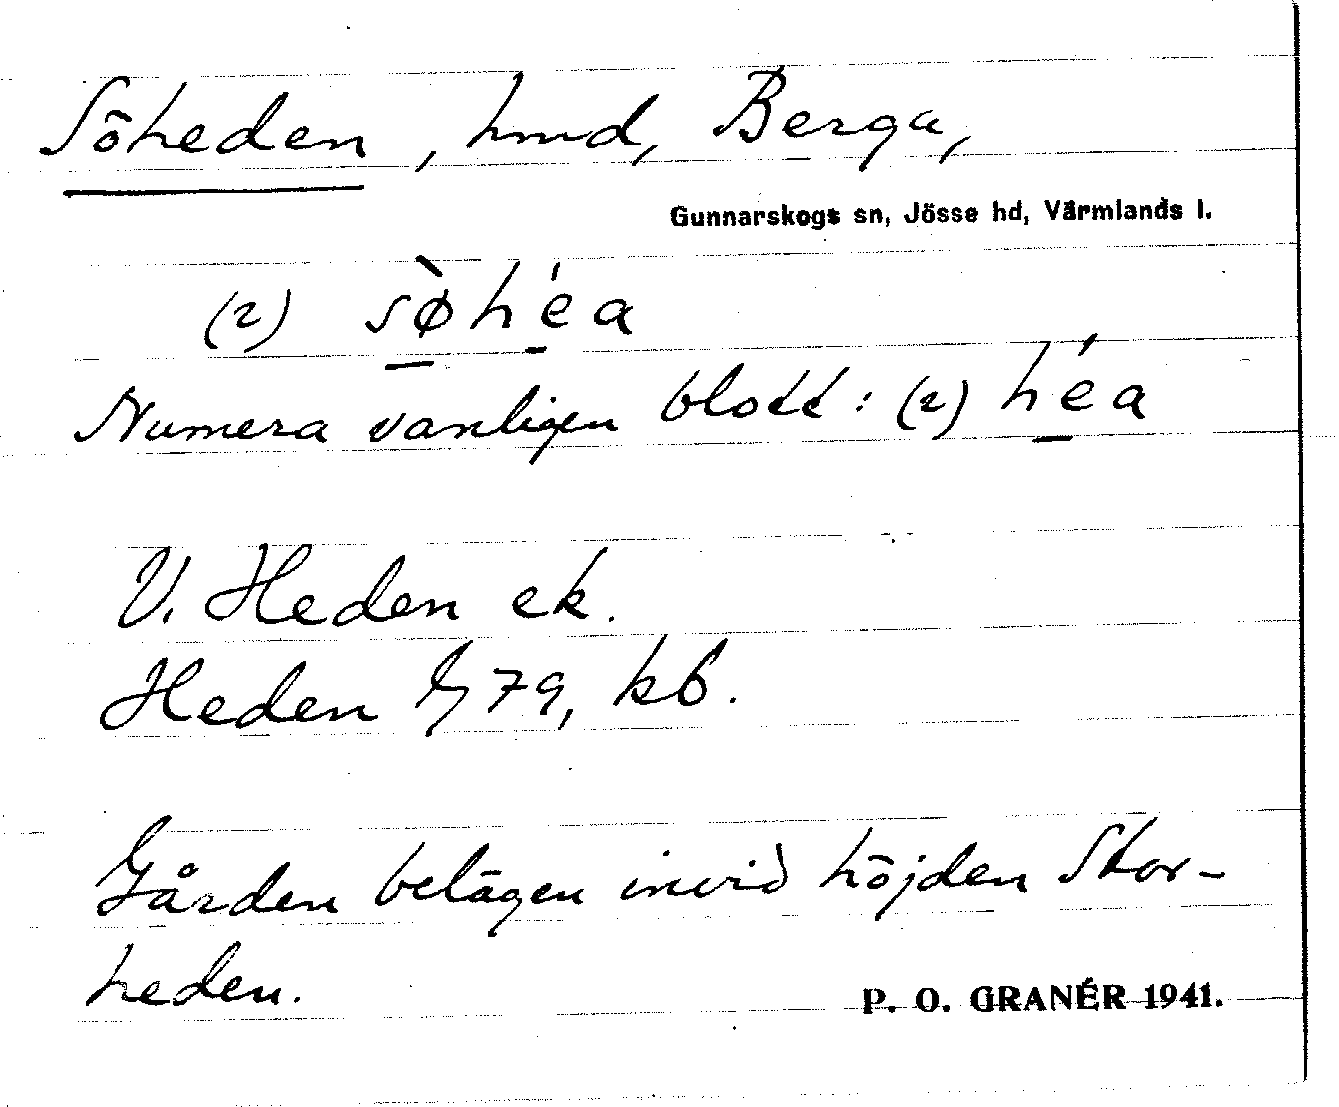 Söheden, hmd, Berga,
Gunnarskogs sn, Jösse hd, Värmlands l.
(2) sø̀héa
Numera vanligen blott: (2) héa
V. Heden ek.
Heden 79, kb.
Gården belägen invid höjden Stor-
heden.
P. O. GRANÉR 1941.